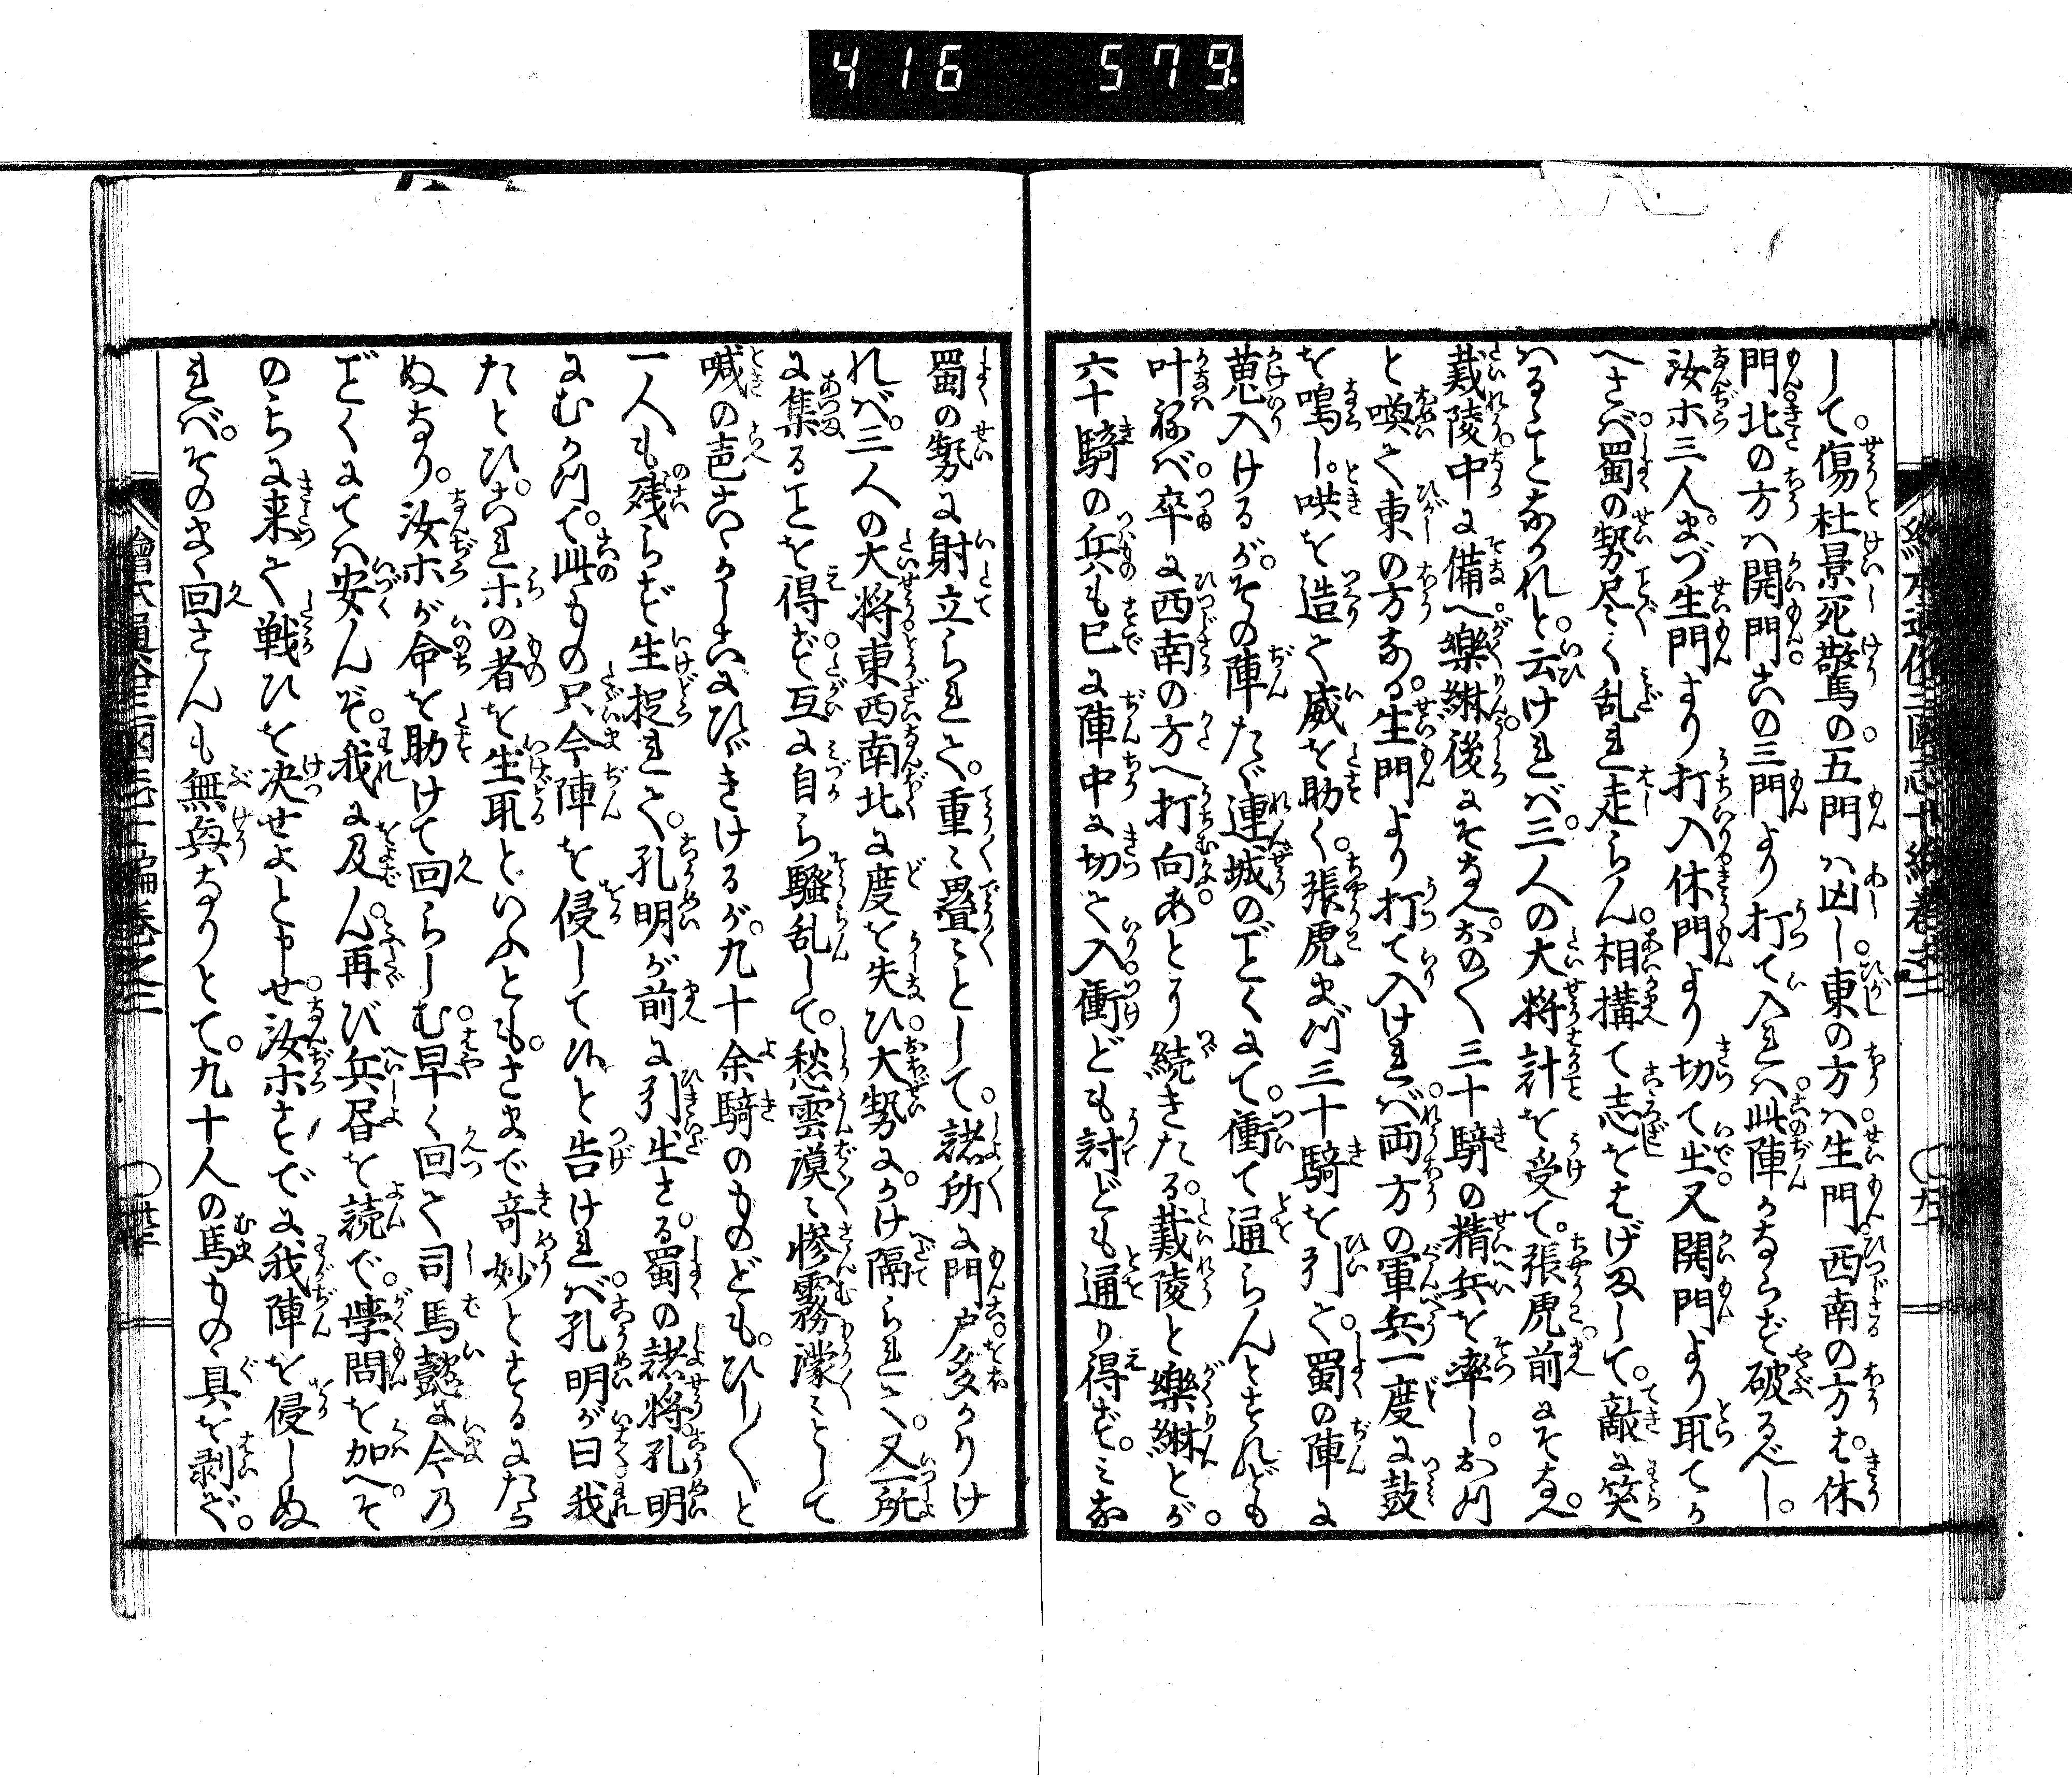 416 579.
して。傷杜景死驚の。五門ハ凶し。東の方ハ生門。西南の方も。休
門。北の方ハ開門。この三門より打て入れハ。此陣かならず破るべし。
汝ホ三人。まづ生門より打入休門より切て出。又開門より取てか
へさバ。蜀の勢尽く乱れ走らん。相構て志をはげまして。敵に笑
ハるゝことなかれと。云けれバ。三人の大将計を受て。張虎前にそなへ。
戴陵中に備へ。樂綝後にそなへ。おの〱三十騎の精兵を率し。おつ
と喚て東の方なる。生門より打て入けれバ。両方の軍兵一度に鼓
を鳴し。哄を造て威を助く。張虎まづ三十騎を引て。蜀の陣に
蒐入けるが。その陣たゞ連城のごとくにて。衝て通らんとすれども
叶ねバ。卒に西南の方へ打向ふ。あとり続きたる。戴陵と樂綝とが。
六十騎の兵も已に陣中に切て入。衝ども討ども通り得ず。ミな
蜀の勢に射立られて。重〻畳〻として。諸所に門戸多かりけ
れバ。三人の大将東西南北に度を失ひ。大勢に。かけ隔られて。又一所
に集ることを得ず。互に自ら騒乱して。愁雲漠〻惨霧濛〻として
喊の声こゝかしこにひゞきけるが。九十余騎のものども。ひし〱と
一人も残らず生捉れて。孔明が前に引出さる。蜀の諸将孔明
にむかつて。此もの只今陣を侵して候と告けれバ。孔明が曰我
たとひ。これホの者を生取といふとも。さまで奇妙とするにたら
ぬなり。汝ホが命を助けて回らしむ。早く回て司馬懿に今乃
ごとくにてハ安んぞ。我に及ん。再び兵書を読で。学問を加へ。そ
のちに来て戦ひを決せよと申せ。汝ホすでに我陣を侵しぬ
れバ。そのまゝ回さんも無興なりとて。九十人の馬ものゝ具を剥ぎ。